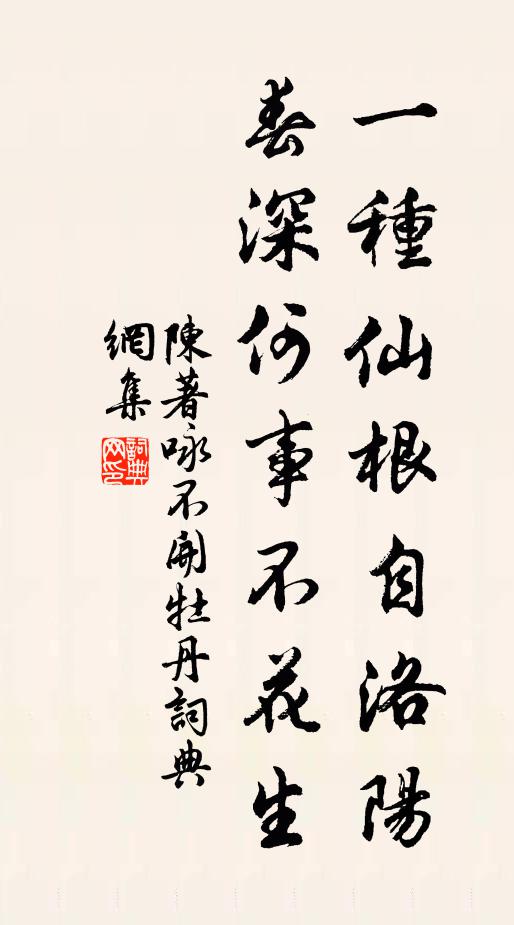 一種仙根自洛陽
春深何事不花生
陳著咏不開牡丹詞典
網集
詞典
网印